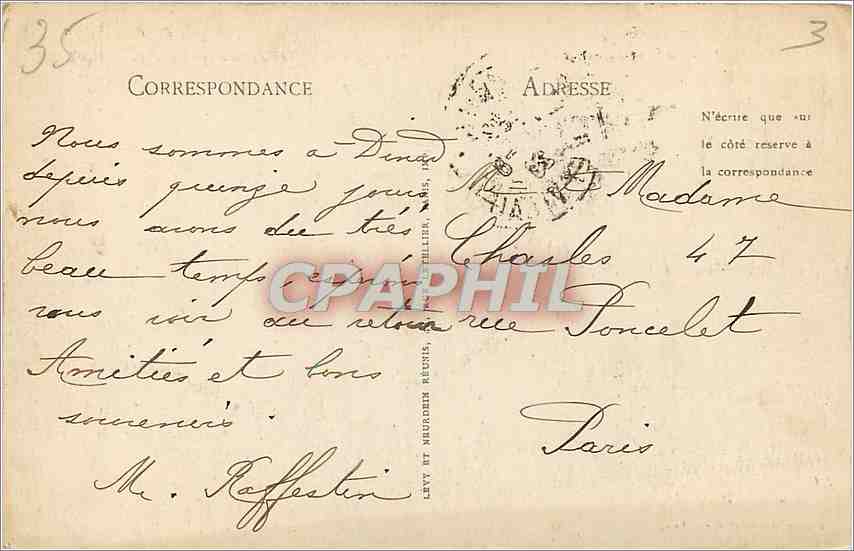 35
3
CORRESPONDANCE
ADRESSE
N'écrire que sur
le côté reserve à
la correspondance
Nous sommes à Dinard
depuis quinze jours
nous avons du très
beau temps, espérons
vous voir au retour
Amitiés et bons
souvenirs.
M. Raffestin
LEVY ET NEURDEIN RÉUNIS, RUE LETELLIER, PARIS, IMP
M et Madame
Chasles 47
rue Poncelet
Paris
CPAPHIL